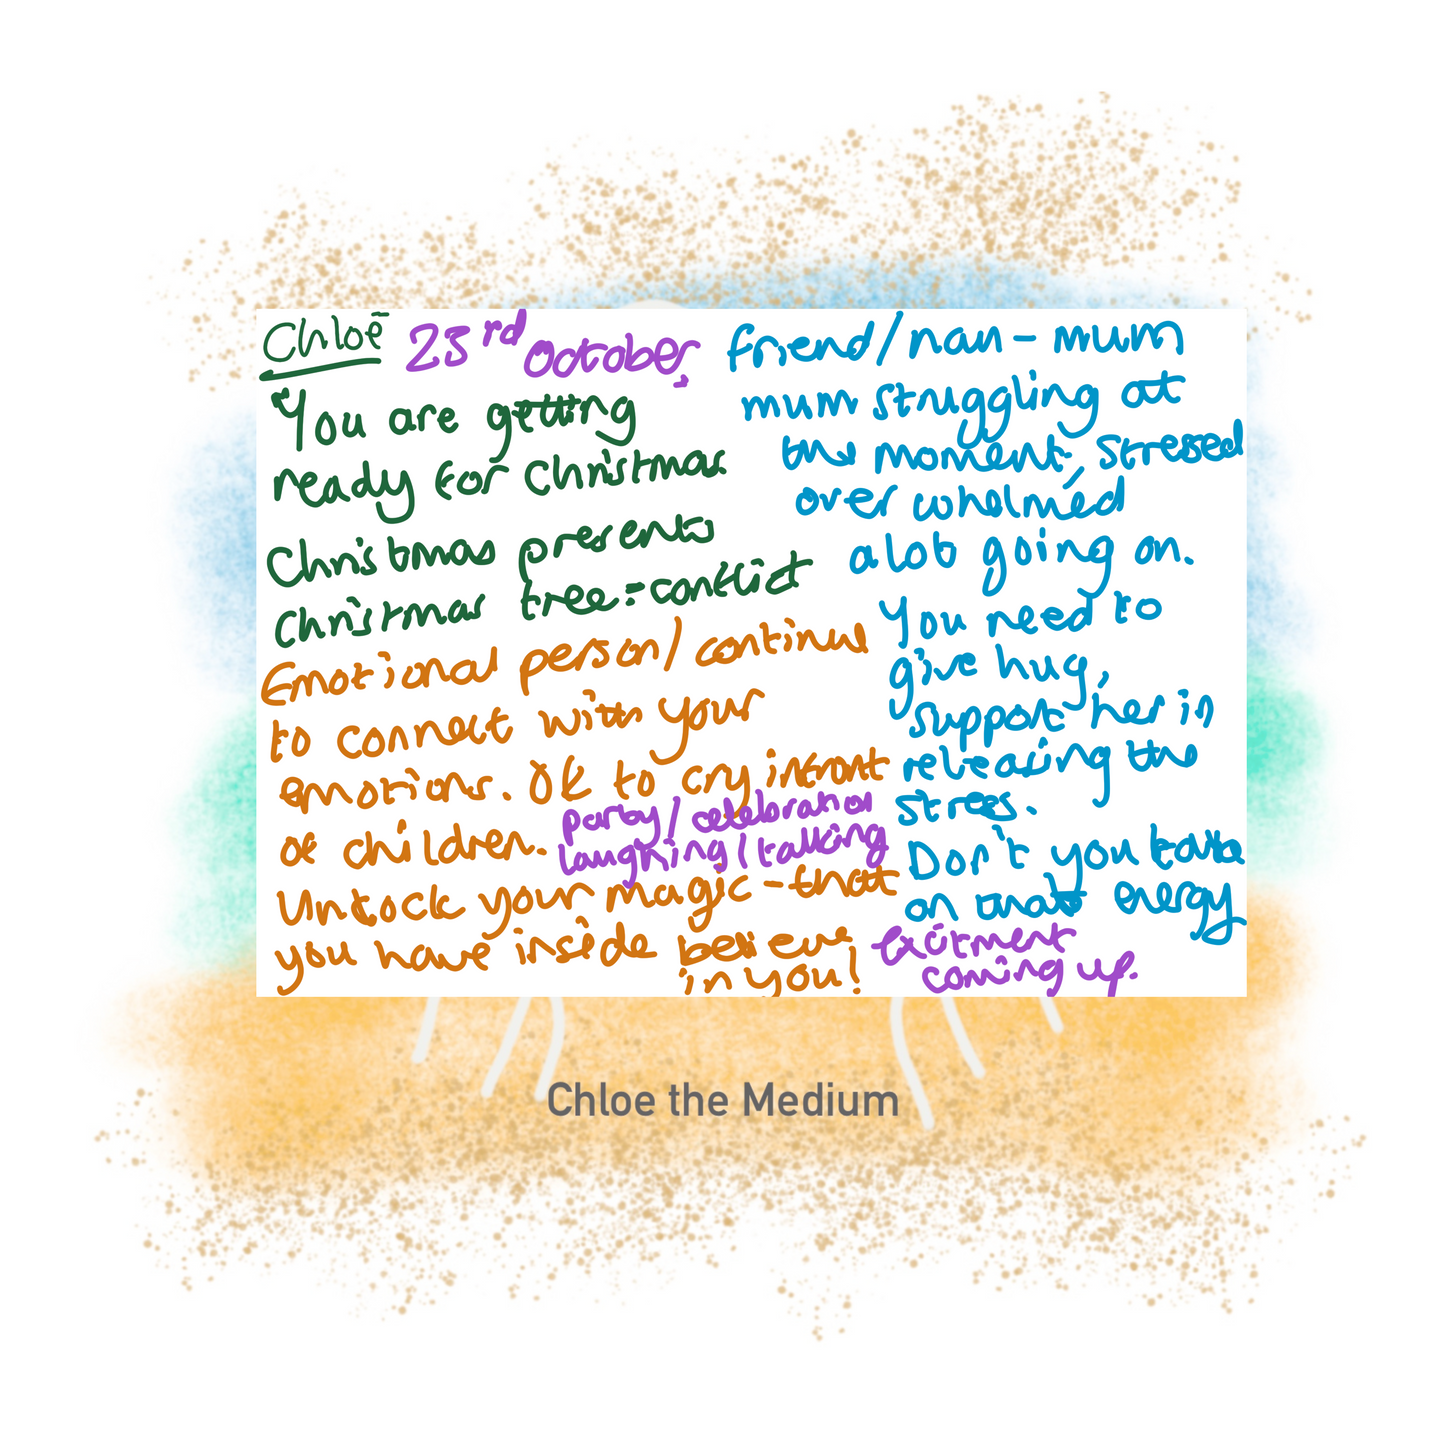 Chloē 23rd October,
You are getting
ready for Christmas
Christmas presents
Christmas tree = conflict
Emotional person/continue
to connect with your
emotions. OK to cry infront
of children.
party/celebration
laughing/talking
Unlock your magic - that
you have inside believe
in you!
friend/nan - mum
mum struggling at
the moment, stressed
over whelmed
alot going on.
You need to
give hug,
support her in
releasing the
stress.
Don't you take
on that energy
Excitment
coming up.
Chloe the Medium